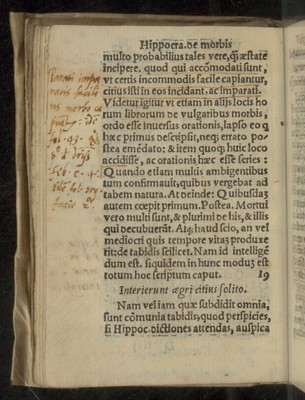 Hippocra. de morbis
multo probabilius tales vere, ꝗ̃ æstate
incipere. quod qui accõmodati sunt,
vt certis incommodis facile capiantur,
citius isti in eos incidant, ac imparati.
Videtur igitur vt etiam in alijs locis ho
rum librorum de vulgaribus morbis,
ordo esse inuersus orationis, lapso eo ꝙ
hæc primus descripsit, neqꝫ errato po
stea emẽdato: & item quoqꝫ huic loco
accidisse, ac orationis hæc esse series:
Quando etiam multis ambigentibus
tum confirmauit, quibus vergebat ad
tabem natura. At deinde: Quibusdã
autem cœpit primum. Postea. Mortui
vero multi sunt, & plurimi de his, & illis
qui decubuerũt. Atqꝫ haud scio, an vel
mediocri quis tempore vitaʒ produxe
rit: de tabidis scilicet. Nam id intelligẽ
dum est. siquidem in hunc moduʒ est
totum hoc scriptum caput. 19
Interierunt ægri citius solito.
Nam vel iam quæ subdidit omnia,
sunt cõmunia tabidis, quod perspicies,
si Hippoc. dictiones attendas, auspica